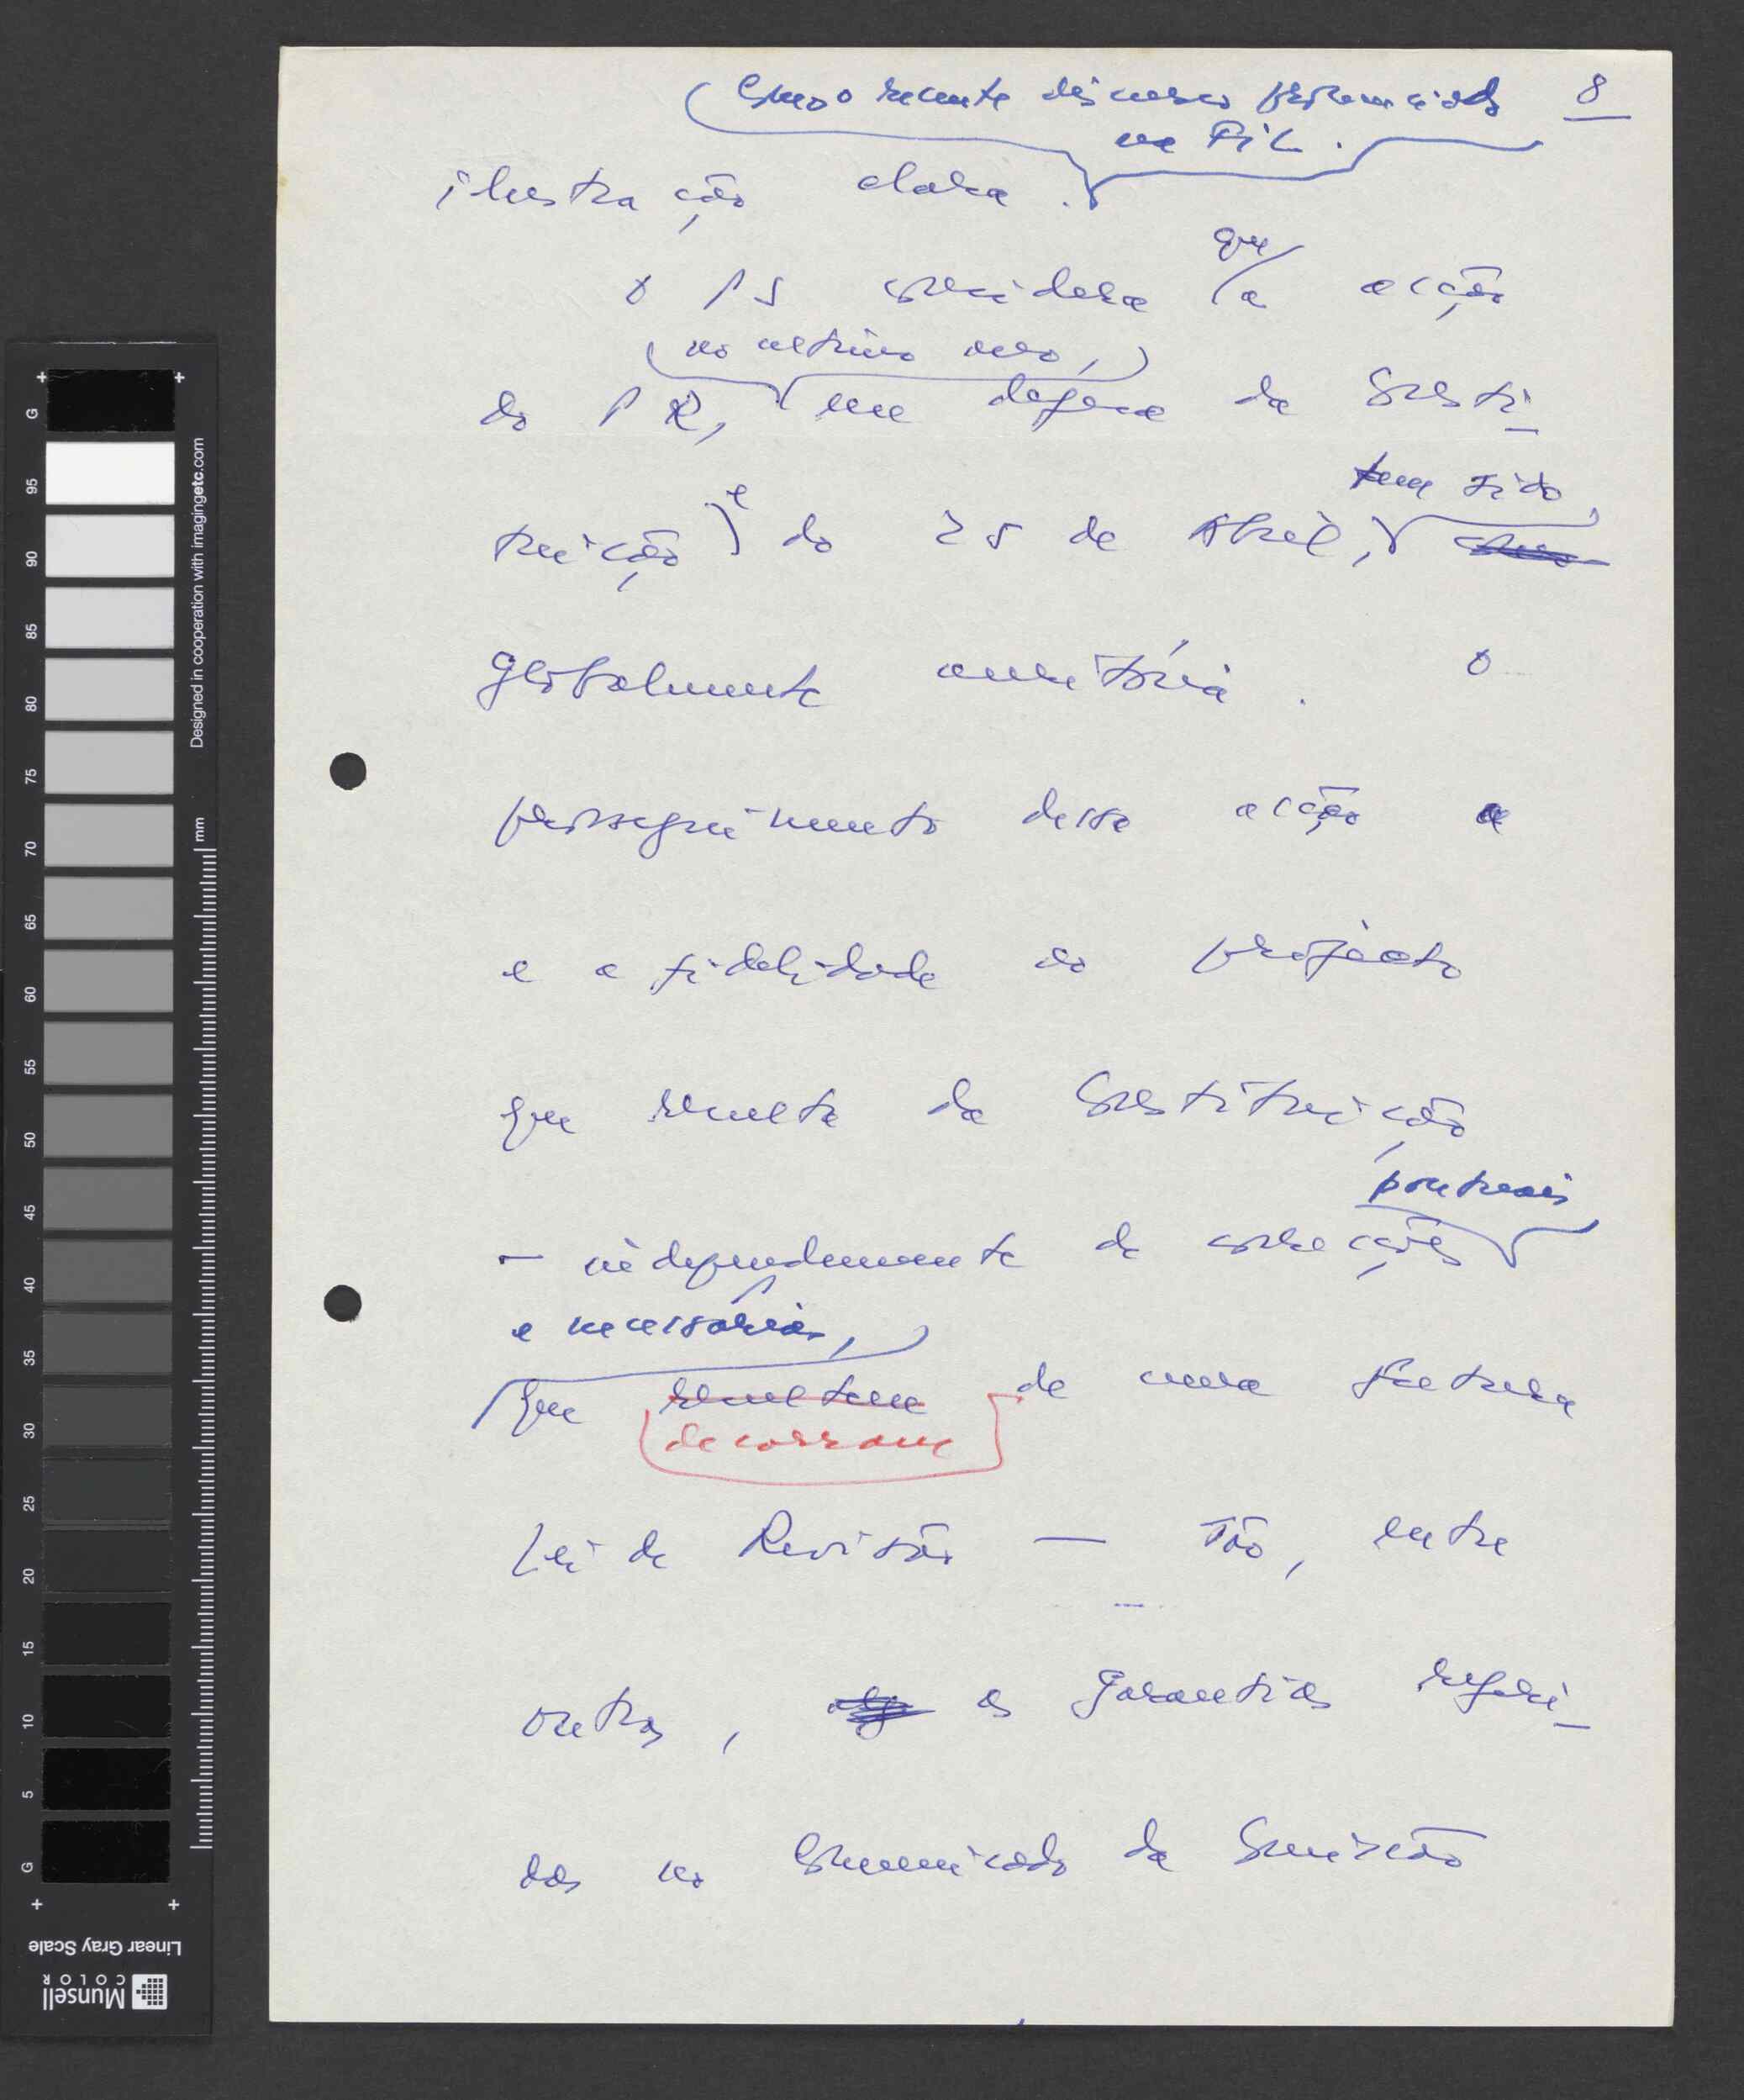 8
como o recente discurso pronunciado
na FIL.
ilustração clara.
O PS considera que a acção
no ultimo ano,
do PR, em defesa da Consti-
tem sido
tuição e do 25 de Abril,
globalmente meritória. O
prosseguimento dessa acção
e a fidelidade ao projecto
que resulta da Constituição
pontuais
— independemente de correcções
e necessárias,
que resultem de uma futura
decorram
Lei de Revisão — são, entre
outras, as garantias referi-
das no Comunicado da Comissão
Designed in cooperation with imagingetc.com
mm
G 95 90 85 80 75 70 65 60 55 50 45 40 35 30 25 20 15 10 5 G
Linear Gray Scale
Munsell
COLOR